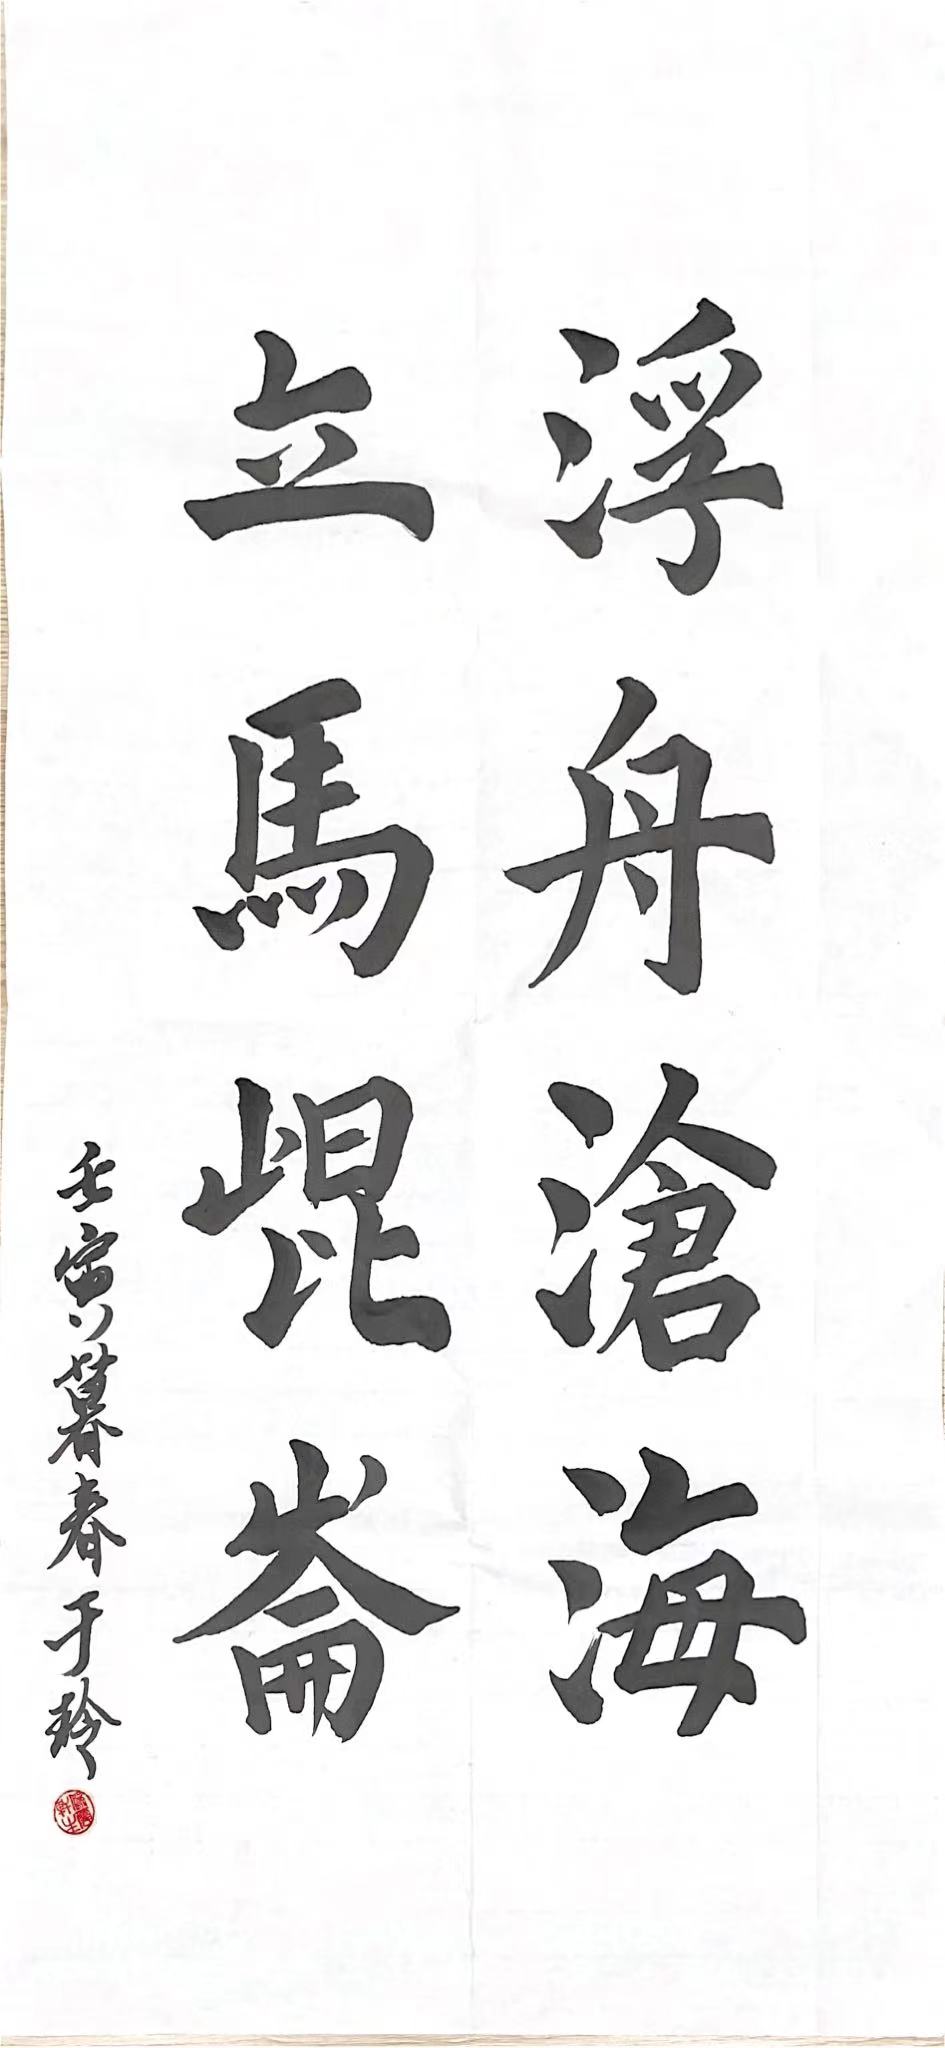 浮舟滄海
立馬崐崙
壬寅暮春于玲